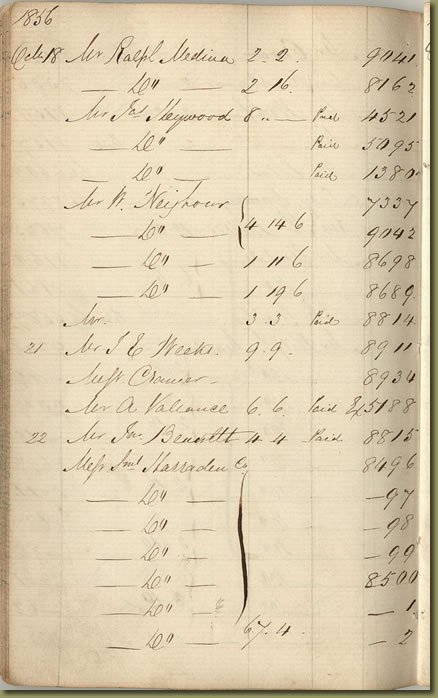 1856
Octr 18 Mr Ralph Medina 2 . 2 . 9041
— Do — 2 16 . 8162
Mr Jas Heywood 8 .. — Paid 4521
— Do — Paid 5095
— Do — Paid 1380
Mr W. Neighour 7337
— Do — 4 14 6 9042
— Do — 1 11 6 8698
— Do — 1 19 6 8689
Mr 3 . 3 Paid 8814
21 Mr J E Weeks . 9 . 9 . 8911
Messr Cramer 8934
Mr A Vallance 6 . 6 . Paid Ex 5188
22 Mr Jno Bennett 4 4 Paid 8815
Mess Harraden Co 8496
— Do — — 97
— Do — — 98
— Do — — 99
— Do — 8500
— Do — — 1
— Do — 67 . 4 . — 2